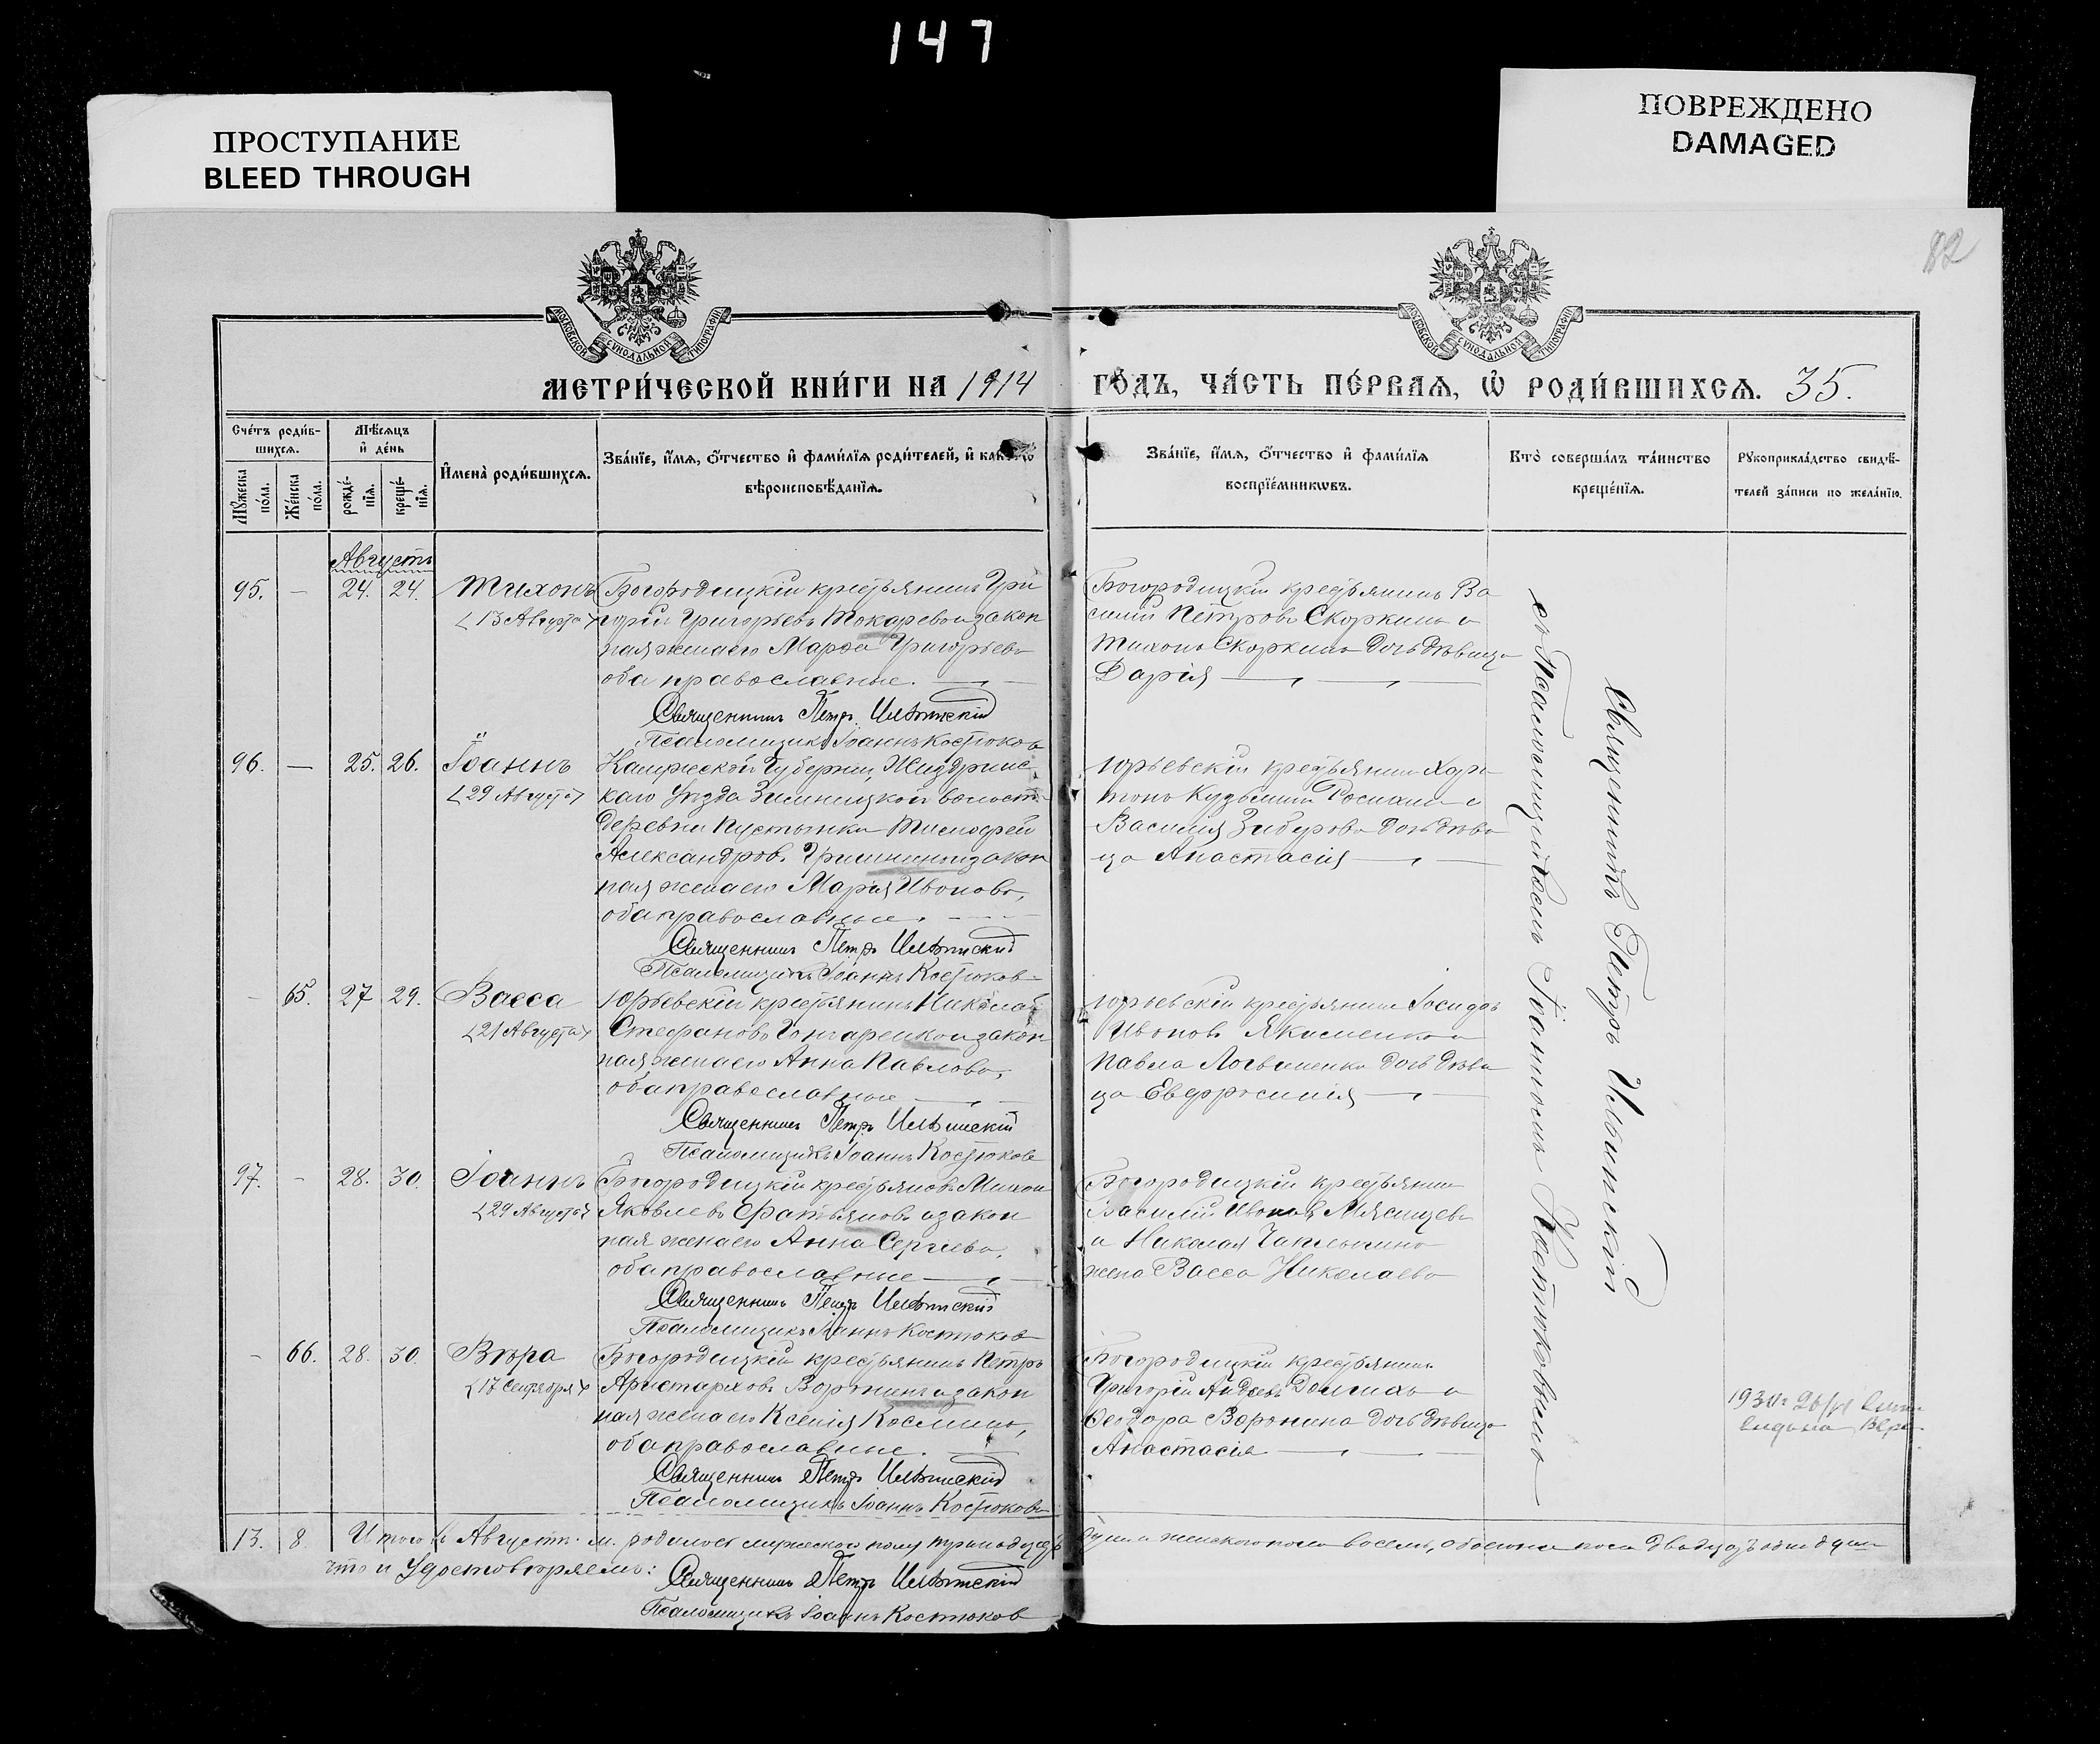 147
ПРОСТУПАНИЕ
BLEED THROUGH
ПОВРЕЖДЕНО
DAMAGED
82
МОСКОВСКОЙ СѴНОДАЛЬНОЙ ТИПОГРАФІИ
МОСКОВСКОЙ СѴНОДАЛЬНОЙ ТИПОГРАФІИ
МЕТРИ́ЧЕСКОЙ КНИ́ГИ НА 1914 ГО́ДЪ, ЧА́СТЬ ПЕ́РВАЯ, Ѽ РОДИ́ВШИХСЯ. 35.
Сче́тъ роди́в-
шихся.
Мѣ́сяцъ
и҆ де́нь
Мꙋжеска по́ла.
Же́нска по́ла.
рожде́-
нїя.
креще́-
нїя.
И҆мена̀ роди́вшихся.
Зва́нїе, и҆́мя, ѻ҆́тчество и҆ фами́лїя роди́телей, и҆ како́го
вѣроисповѣ́данїя.
Зва́нїе, и҆́мя, ѻ҆́тчество и҆ фами́лїя
воспрїе́мникѡвъ.
Кто̀ соверша́лъ та́инство
креще́нїя.
Рꙋкоприкла́дство свидѣ́-
телей за́писи по жела́нїю.
Августъ
95. — 24. 24. Тихонъ
13 Августа
Богородицкій крестьянинъ Гри
горій Григорьевъ Токаревъ и закон
ная жена его Марѳа Григорьева
оба православные.
Священникъ Петръ Ильинскій
Псаломщикъ Іоаннъ Костюковъ
Богородицкій крестьянинъ Ва
силій Петровъ Скоркинъ и
Тихона Скоркина дочь дѣвица
Дарія
96. — 25. 26. Іоаннъ
29 Августа
Калужской Губерніи, Жиздринс
каго уѣзда Зимницкой волости
деревни Пустынки Тимофей
Александровъ Гришинъ и закон
ная жена его Марія Иванова,
оба православные.
Священникъ Петръ Ильинскій
Псаломщикъ Іоаннъ Костюковъ
Юрьевскій крестьянинъ Хари
тонъ Кузьминъ и
Василія Зибурова дочь дѣви
ца Анастасія
— 65. 27 29. Васса
21 Августа
Юрьевскій крестьянинъ Николай
Стефановъ Гончаренко и закон
ная жена его Анна Павлова,
оба православные
Священникъ Петръ Ильинскій
Псаломщикъ Іоаннъ Костюковъ
Юрьевскій крестьянинъ Іосифъ
Ивановъ Якименко и
Павла Логвиненко дочь дѣви
ца Евфросинія
97. — 28. 30. Іоаннъ
29 Августа
Богородицкій крестьянинъ Михаилъ
Яковлевъ и закон
ная жена его Анна Сергѣева,
оба православные
Священникъ Петръ Ильинскій
Псаломщикъ Іоаннъ Костюковъ
Богородицкій крестьянинъ
Василій Ивановъ Мясищевъ
и Николая Чаплыгина
жена Васса Николаева
— 66. 28. 30. Вѣра
17 Сентября
Богородицкій крестьянинъ Петръ
Аристарховъ Воронинъ и закон
ная жена его Ксенія Космина,
оба православные.
Священникъ Петръ Ильинскій
Псаломщикъ Іоаннъ Костюковъ
Богородицкій крестьянинъ
Григорій Долгихъ и
Ѳеодора Воронина дочь дѣвица
Анастасія
Священникъ Петръ Ильинскій
съ Псаломщикомъ Іоанномъ Костюковымъ
13. 8. Итого въ Августѣ м. родилось мужескаго полу тринадцать душъ и женскаго пола восемь, обоего пола двадцать одна душа
что и удостовѣряемъ:
Священникъ Петръ Ильинскій
Псаломщикъ Іоаннъ Костюковъ